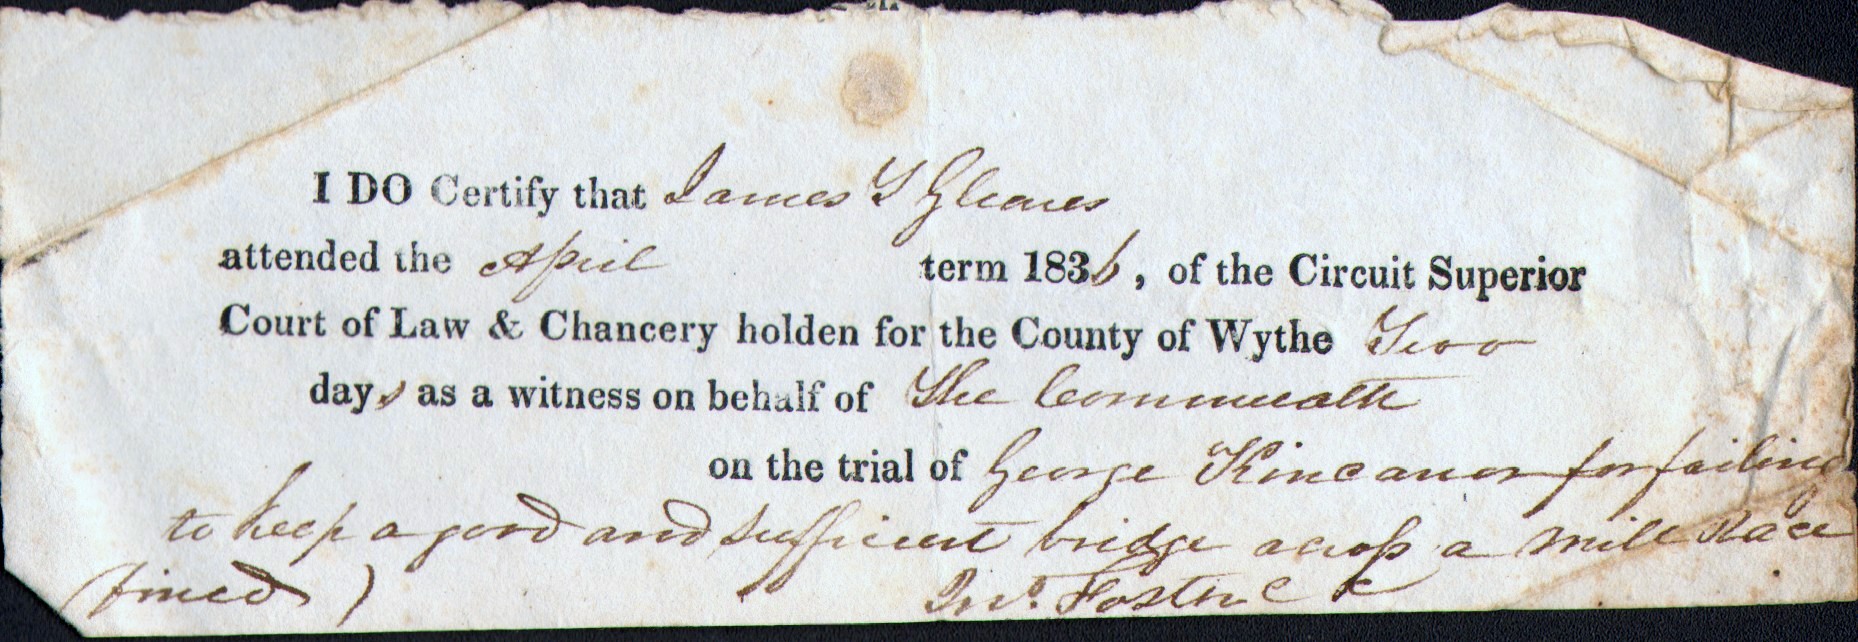 I DO Certify that James T Gleaves
attended the April term 1836, of the Circuit Superior
Court of Law & Chancery holden for the County of Wythe Two
days as a witness on behalf of The Commwealth
on the trial of George Kincannon for failing
to keep a good and sufficient bridge across a mill Race
(fined) Jno. Foster C C